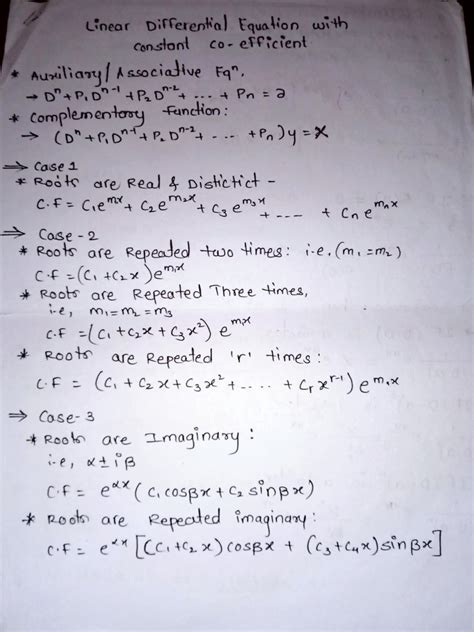 Linear Differential Equation with
constant co-efficient
* Auxiliary/Associative Eqⁿ,
→ Dⁿ+P₁Dⁿ⁻¹+P₂Dⁿ⁻²+ ... + Pn = 2
* Complementory function:
→ (Dⁿ+P₁Dⁿ⁻¹+P₂Dⁿ⁻²+ - ... +Pn)y = X
⇒ Case 1
* Roots are Real & Distictict -
C.F = C₁e^{mx} + C₂e^{m₂x} + C₃e^{m₃x} + --- + Cne^{mnx}
⇒ Case - 2
* Roots are Repeated two times: i.e.(m₁=m₂)
C.F = (C₁+C₂x)e^{m₁x}
* Roots are Repeated Three times,
i.e, m₁=m₂=m₃
C.F = (C₁+C₂x+C₃x²) e^{mx}
* Roots are Repeated 'r' times:
C.F = (C₁+C₂x+C₃x²+ - .... + Crx^{r-1}) e^{m₁x}
⇒ Case-3
* Roots are Imaginary:
i-e, α±iβ
C.F = e^{αx} (C₁cosβx+C₂ sinβx)
* Roots are Repeated imaginary:
C.F = e^{αx} [(C₁+C₂x)cosβx + (C₃+C₄x)sinβx]